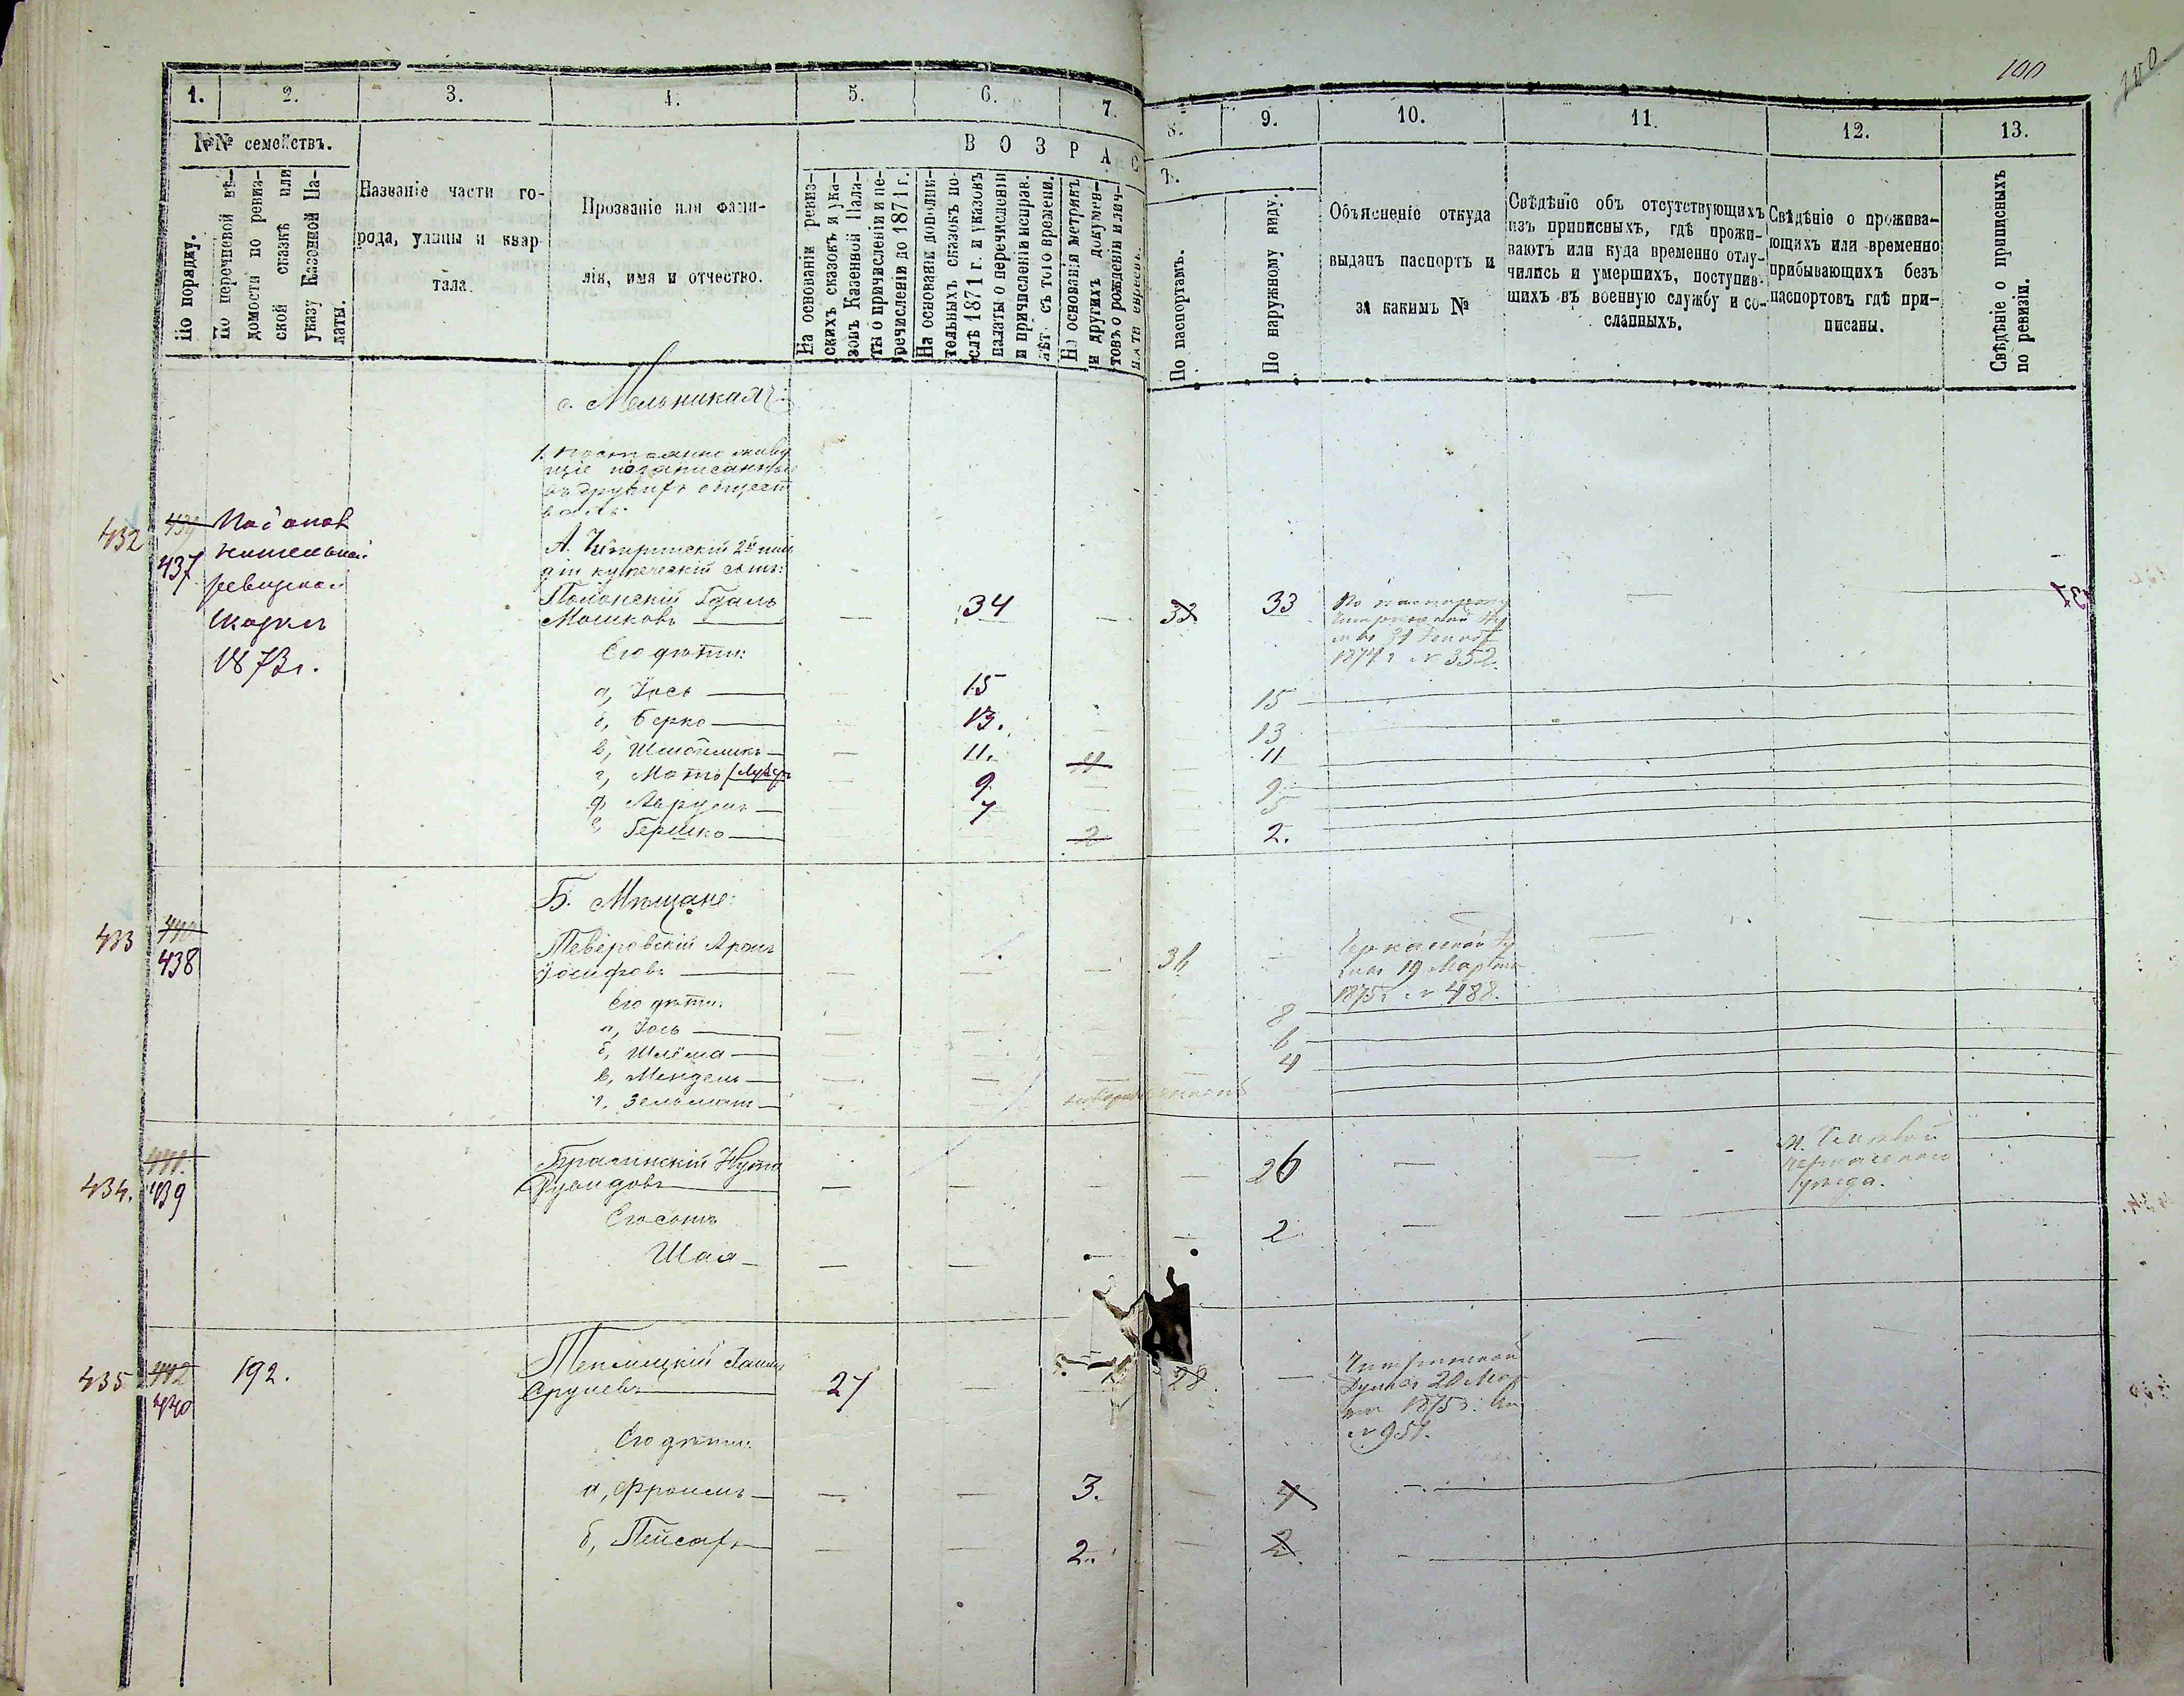 100
200
1.
2.
3.
4.
5.
6.
7.
8.
9.
10.
11.
12.
13.
№№ семействъ.
По порядку.
По перечневой вѣ-
домости по ревиз-
ской сказкѣ или
указу Казенной Па-
латы.
Названіе части го-
рода, улицы и квар-
тала.
Прозваніе или фами-
лія, имя и отчество.
ВОЗРАС
Т.
На основаніи ревиз-
скихъ сказокъ и ука-
зовъ Казенной Пала-
ты о причисленіи и пе-
речисленіи до 1871 г.
На основаніи дополни-
тельныхъ сказокъ по-
слѣ 1871 г. и указовъ
палаты о перечисленіи
и причисленіи исправ.
лѣт. съ того времени.
На основаніи метрикъ
и другихъ докумен-
товъ о рожденіи и лич-
По паспортамъ.
По наружному виду.
Объясненіе откуда
выданъ паспортъ и
за какимъ №
Свѣдѣніе объ отсутствующихъ
изъ приписныхъ, гдѣ прожи-
ваютъ или куда временно отлу-
чились и умершихъ, поступив-
шихъ въ военную службу и со-
сланныхъ.
Свѣдѣніе о прожива-
ющихъ или временно
прибывающихъ безъ
паспортовъ гдѣ при-
писаны.
Свѣдѣніе о приписныхъ
по ревизіи.
с. Мельники
1. Постоянно живу
щіе
въ другихъ общест
вахъ
432
437
ревизской
сказки
1873 г.
А. Чигиринскій 2й гиль
діи купеческій сынъ:
Полонскій Гдаль
Мошковъ
34
33
33
1874 г. № 352.
Его дѣти:
а, Іось
15
15
б, Берко
13.
13
в, Шмойликъ
11.
11
11
г, Мотя
9
9
д, Ларуль
7
5
е, Гершко
2
2.
Б. Мѣщане:
433
440
438
Теверовскій Аронъ
Іосифовъ
36
Черкасской Ду
мы 19 Марта
1875 г. № 488.
Его дѣти:
а, Іось
8
б, Шлёма
6
в, Мендель
4
г, Зельманъ
434.
441.
439
Нута
Дувидовъ
26
Черкасского
уѣзда.
Его сынъ
Шая
2
435
442
440
192.
Теплицкій
Срулевъ
27
28.
Чигиринской
Думы 20 Мар
та 1875 г. за
№ 951.
Его дѣти:
а, Фроимъ
3.
4
б, Пейсахъ
2.
2.